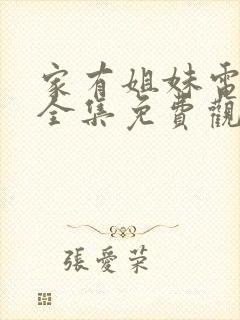 家有姐妹電
全集免費觀
張愛榮